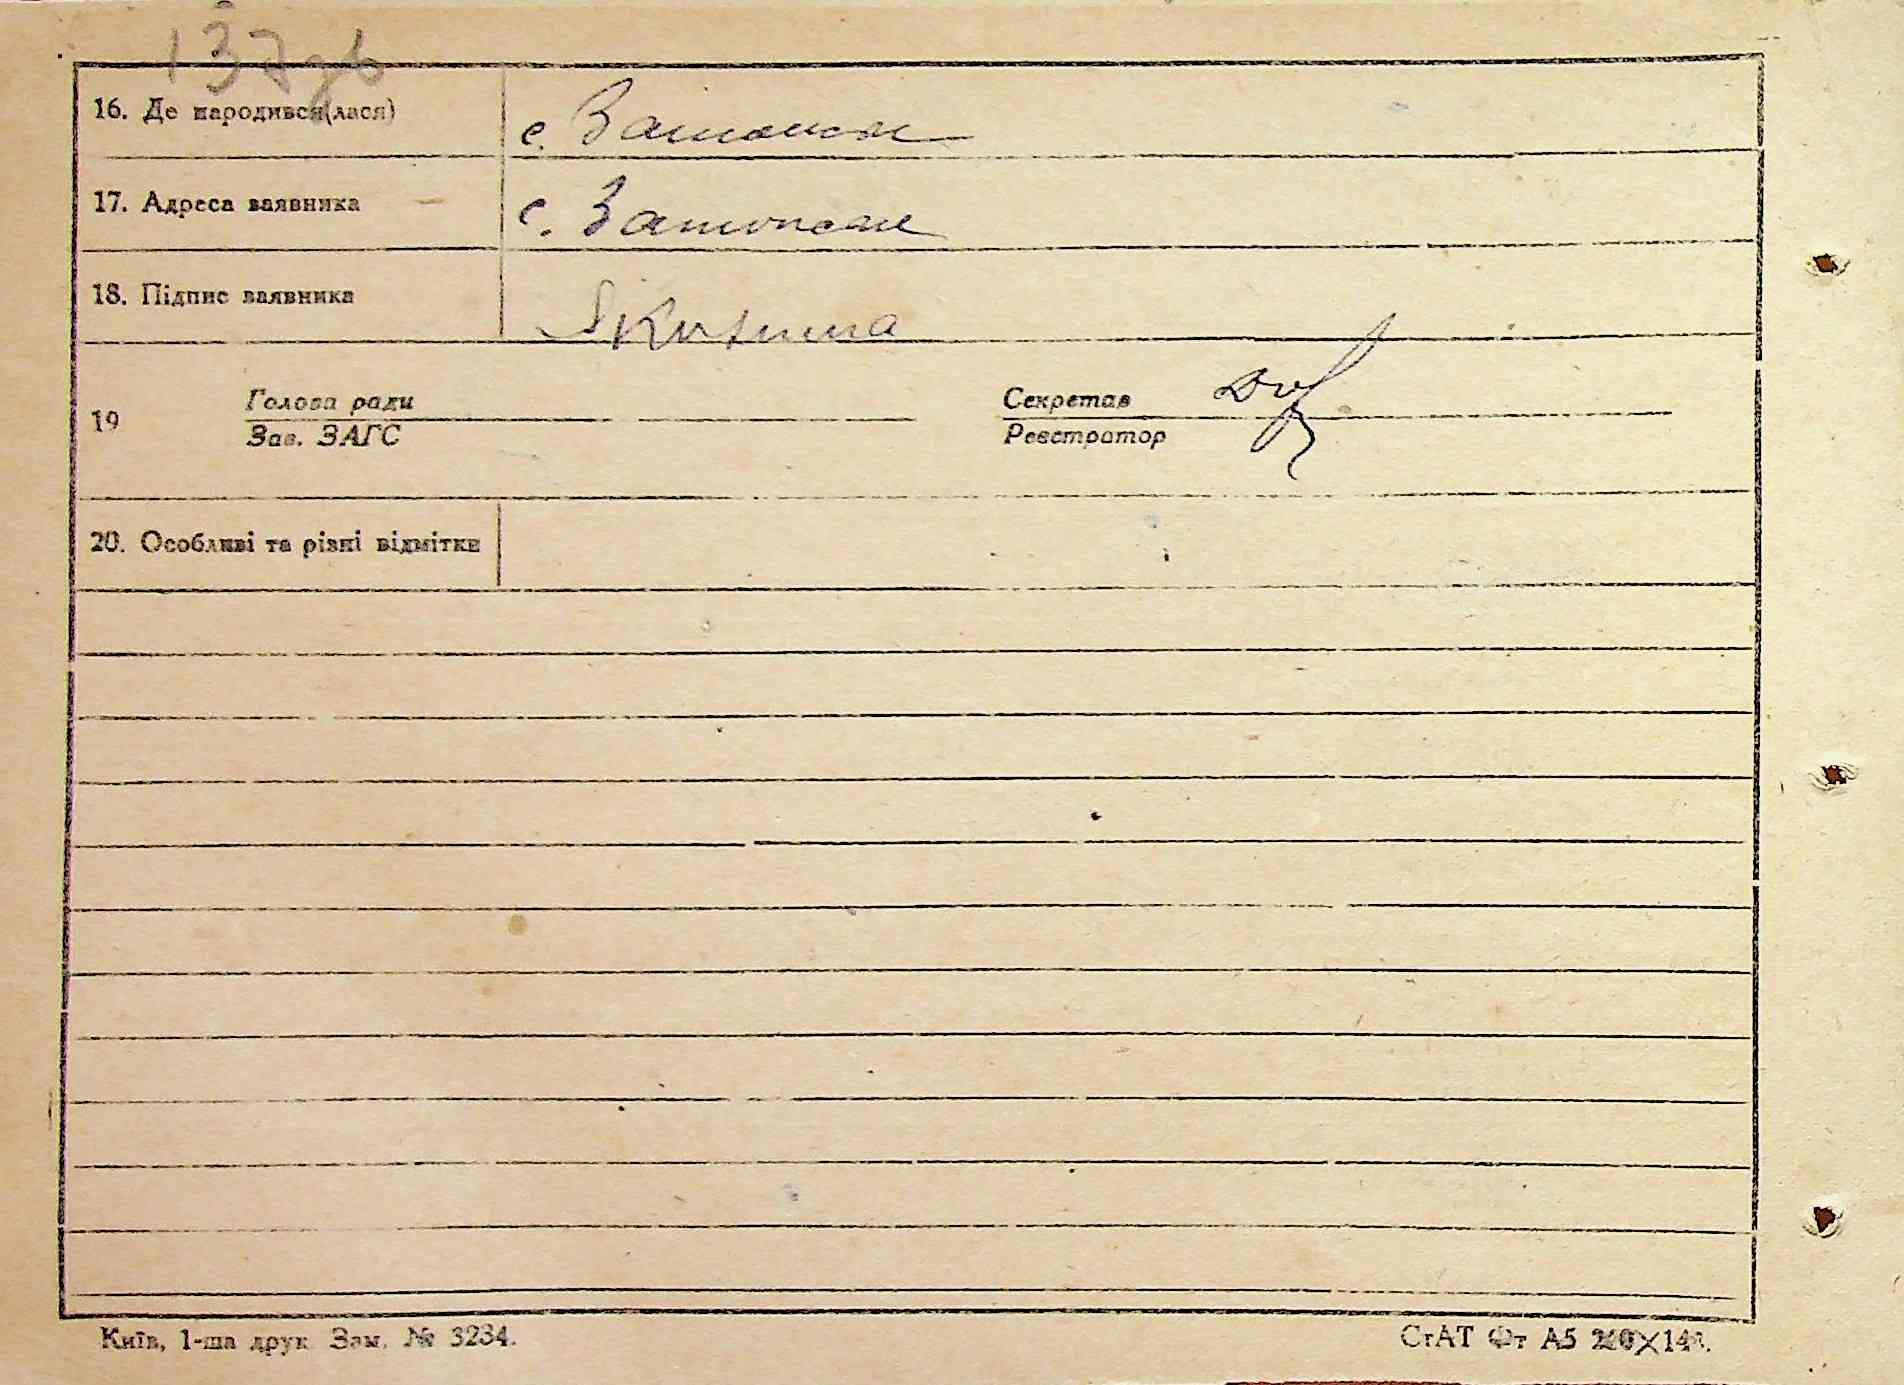 137 зв
16. Де народився(лася)
с. Затонськ
17. Адреса заявника
с. Затонськ
18. Підпис заявника
19
Голова ради
Зав. ЗАГС
Секретар
Реєстратор
20. Особливі та різні відмітки
Київ, 1-ша друк Зам. № 3234.
СтАТ Фт А5 210×148.